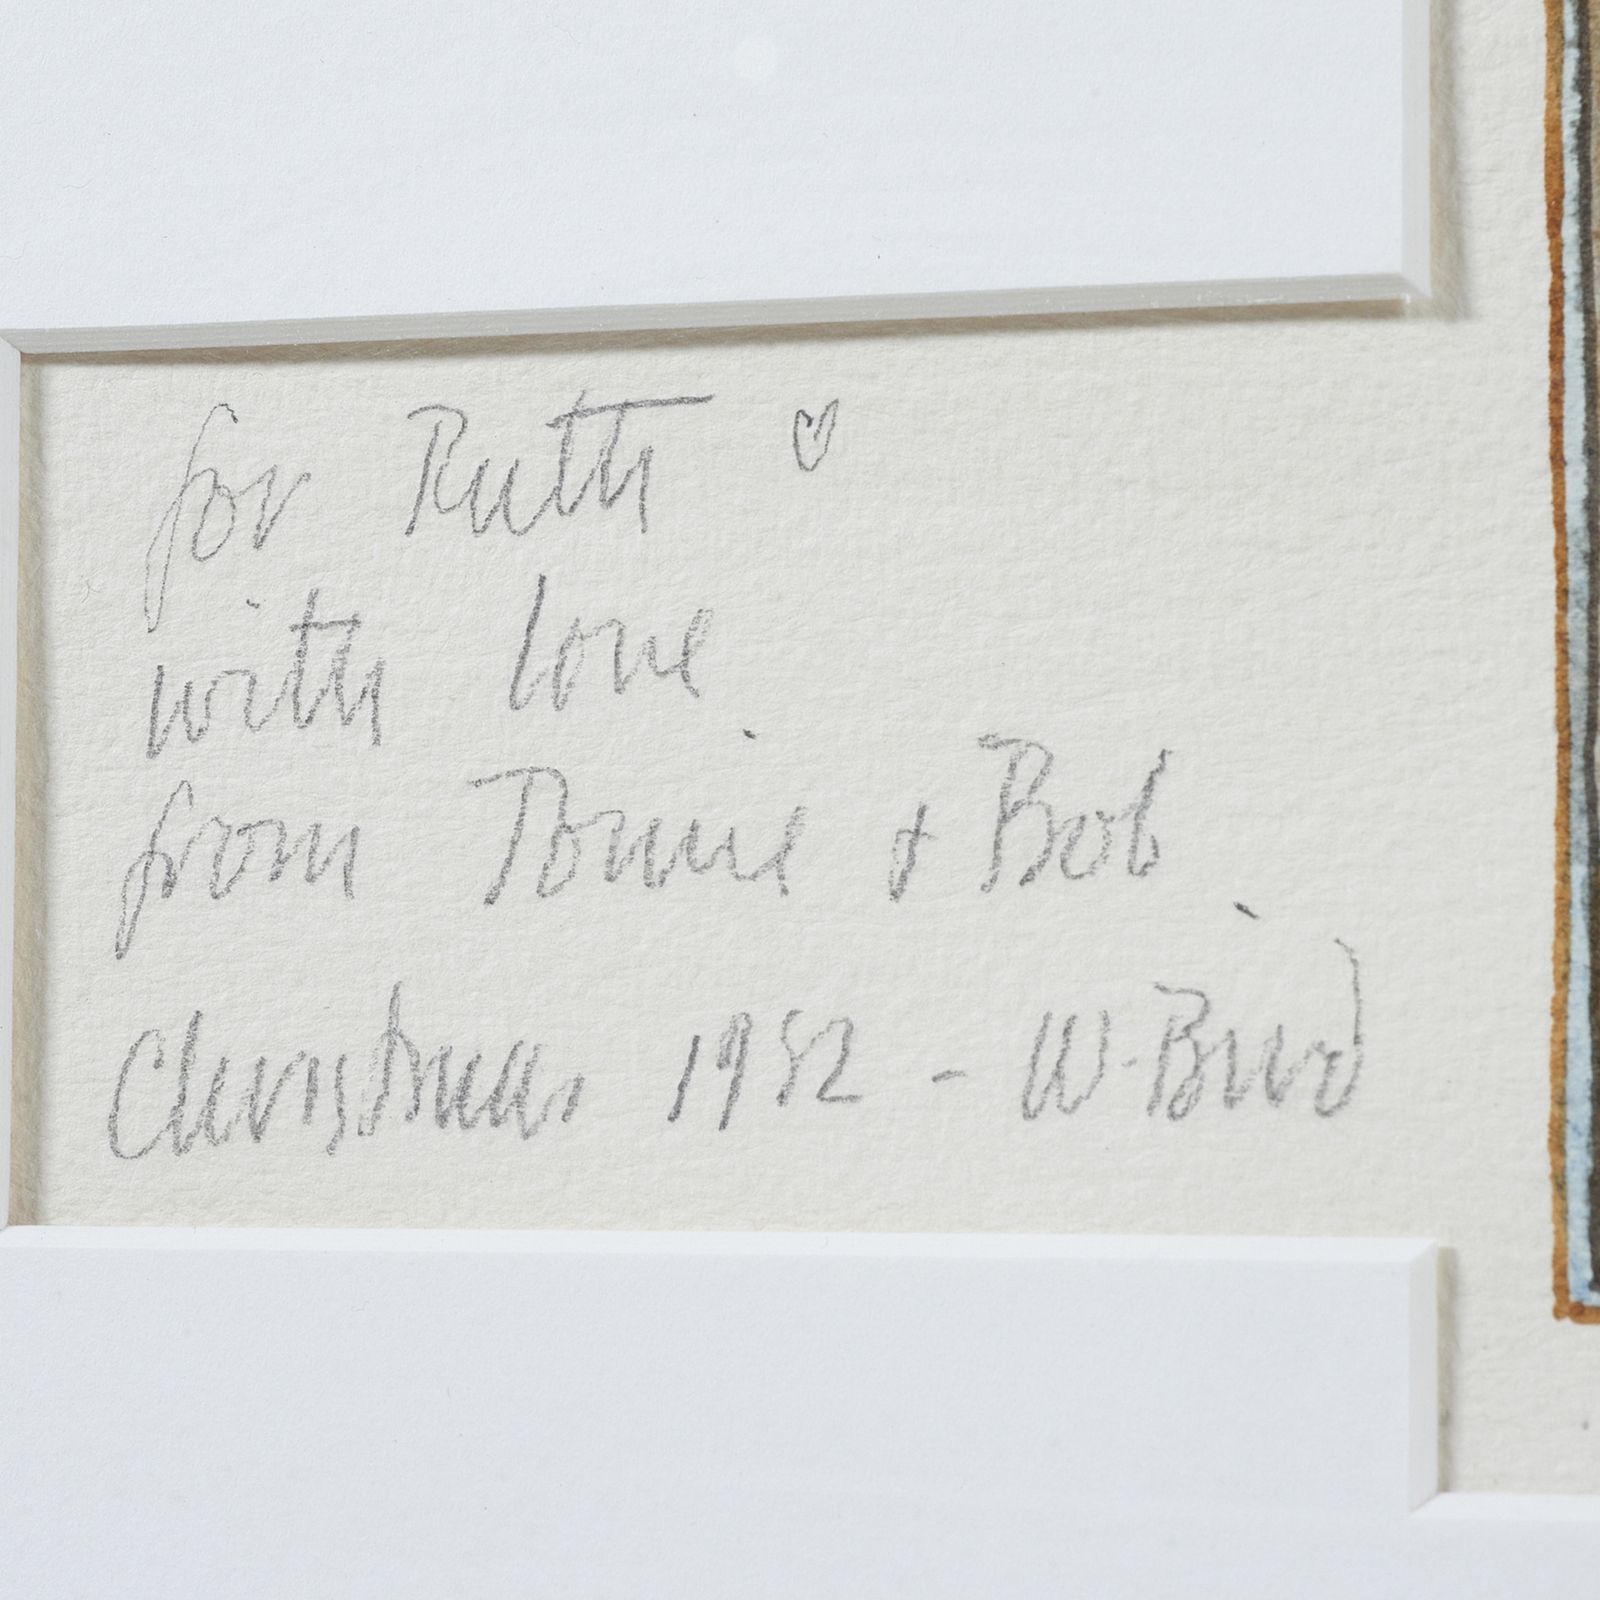 for Ruth ♡
with love
from Tomie + Bob
Christmas 1982 - W. Bird